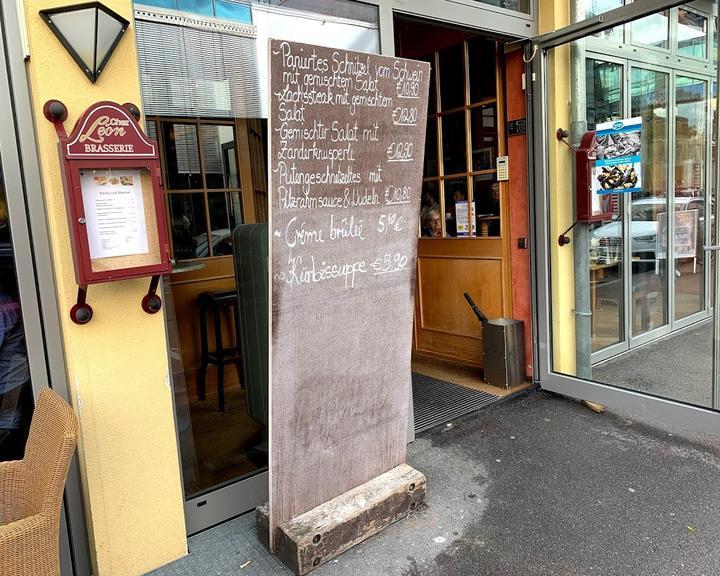 Chez
Léon
BRASSERIE
- Paniertes Schnitzel vom Schwein
mit gemischtem Salat €10,90
- Lachssteak mit gemischtem
Salat €12,80
- Gemischter Salat mit
Zanderknusperle €12,90
- Putengeschnetzeltes mit
Pilzrahmsauce & Nudeln €10,80
~ Crème brûlée 5,60 €
~ Kürbissuppe €5,90